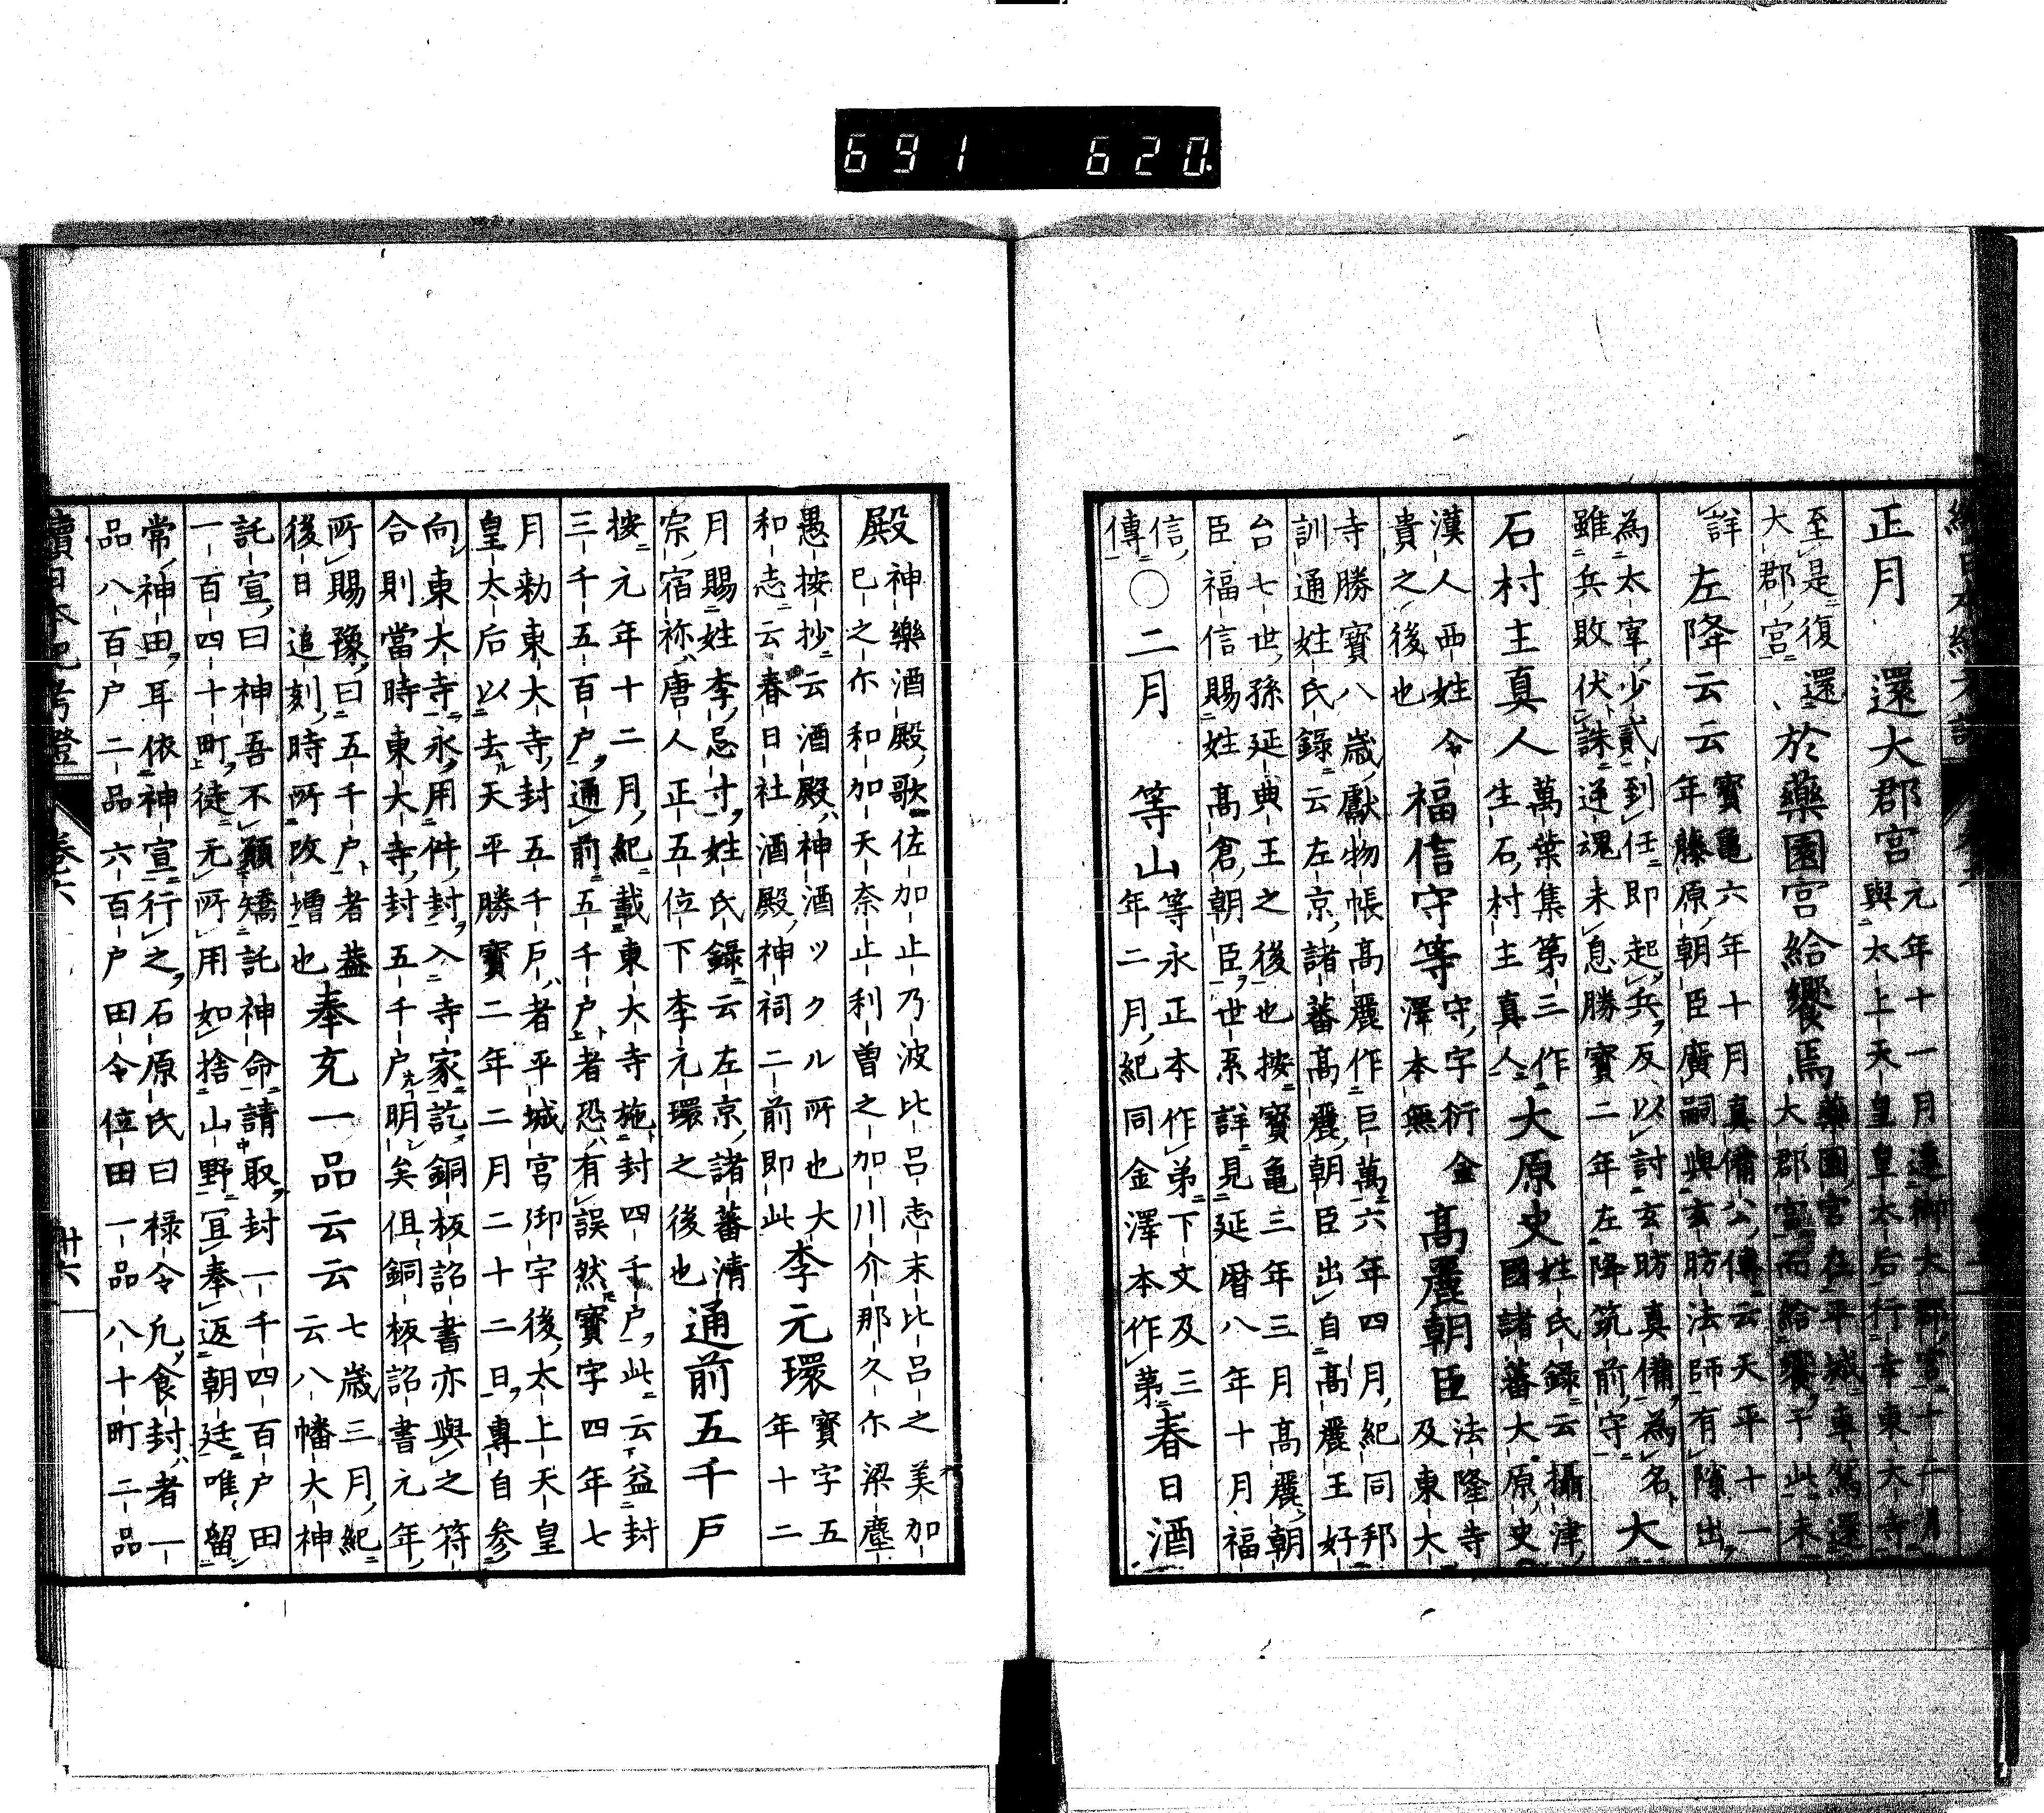 691 620
正月 還大郡宮 元年十一月還御大郡宮十一月
與太上天皇皇太后行幸東大寺
至是復還 於藥園宮給饗焉 藥園宮在平城車駕還
大郡宮 大郡宮而給饗于此未
詳 左降云云 寶龜六年十月真備公傳云天平十一
年藤原朝臣廣嗣與玄昉法師有隙出
為太宰少貳到任即起兵反以討玄昉真備為名 大
雖兵敗伏誅逆魂未息勝寶二年左降筑前守
石村主真人 萬葉集第三作
生石村主真人 大原史 姓氏録云攝津
國諸蕃大原史
漢人西姓令
貴之後也 福信守等 守字衍金
澤本無 高麗朝臣 法隆寺
及東大
寺勝寶八歳獻物帳高麗作巨萬六年四月紀同邦
訓通姓氏錄云左京諸蕃高麗朝臣出自高麗王好
台七世孫延典王之後也按寶龜三年三月高麗朝
臣福信賜姓高倉朝臣世系詳見延暦八年十月福
信
傳 〇二月 等山 等永正本作弟下文及三
年二月紀同金澤本作第 春日酒
殿 神樂酒殿歌佐加止乃波比呂志末比呂之美加
巳之尓和加天奈止利曽之加川介那久尓梁塵
愚按抄云酒殿ハ神酒ツクル所也大
和志云春日社酒殿神祠二前即此 李元環 寶字五
年十二
月賜姓李忌寸姓氏録云左京諸蕃清
宗宿祢唐人正五位下李元環之後也 通前五千戸
按元年十二月紀載東大寺施封四千戸此云益封
三千五百戸通前五千戸者恐有誤然寶字四年七
月勅東大寺封五千戸者平城宮御宇後太上天皇
皇太后以去天平勝寶二年二月二十二日專自参
向東大寺永用件封入寺家訖銅板詔書亦與之符
合則當時東大寺封五千戸明矣但銅板詔書元年
所賜豫曰五千戸者葢
後日追刻時所改増也 奉充一品云云 七歳三月紀
云八幡大神
託宣曰神吾不願矯託神命請取封一千四百戸田
一百四十町徒无所用如捨山野宜奉返朝廷唯留
常神田耳依神宣行之石原氏曰禄令凡食封者一
品八百戸二品六百戸田令位田一品八十町二品
續日本紀考證 卷六 廿六